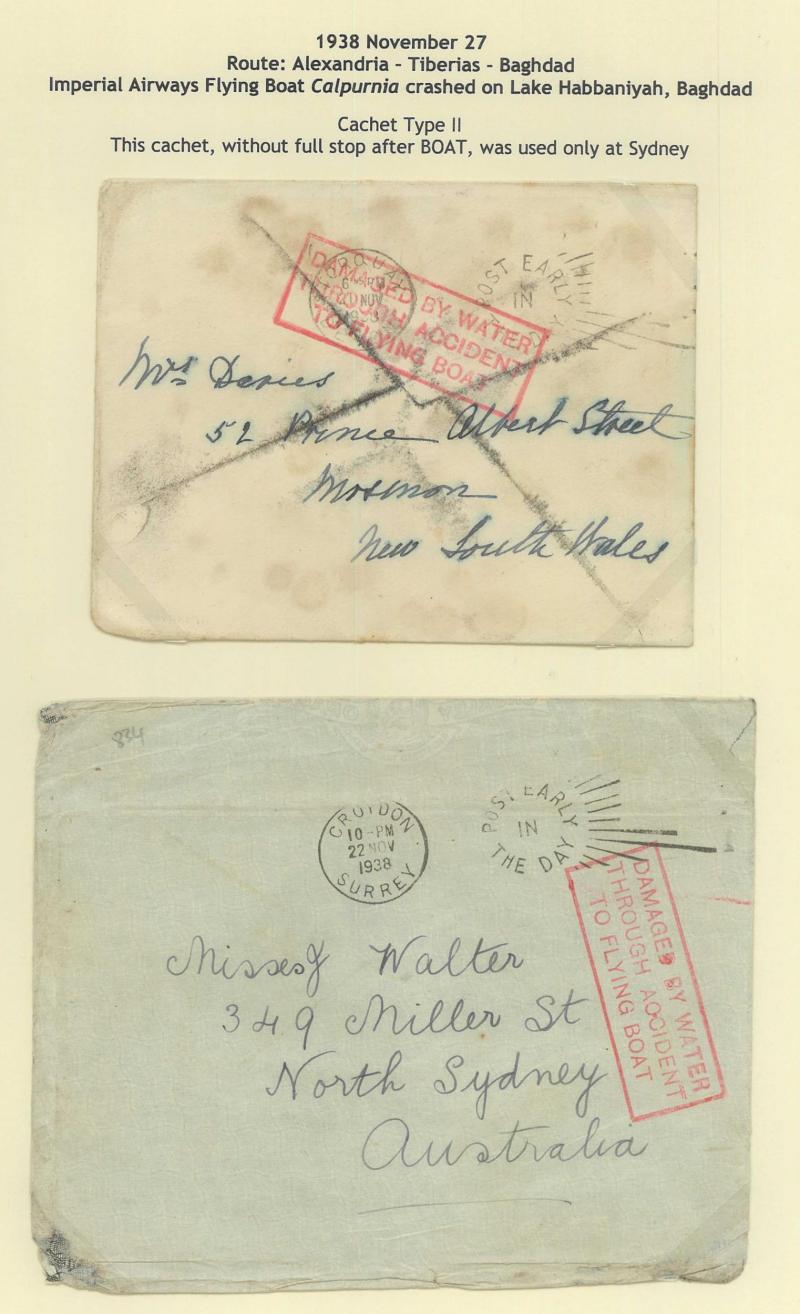 1938 November 27
Route: Alexandria - Tiberias - Baghdad
Imperial Airways Flying Boat Calpurnia crashed on Lake Habbaniyah, Baghdad
Cachet Type II
This cachet, without full stop after BOAT, was used only at Sydney
TORQUAY
NOV
POST EARLY
IN
DAMAGED BY WATER
THROUGH ACCIDENT
TO FLYING BOAT
Mrs Davies
52 Prince Albert Street
Mosmon
New South Wales
834
CROYDON
10-PM
22 NOV
1938
SURREY
POST EARLY
IN
THE DAY
DAMAGED BY WATER
THROUGH ACCIDENT
TO FLYING BOAT
Misses J Walter
349 Miller St
North Sydney
Australia